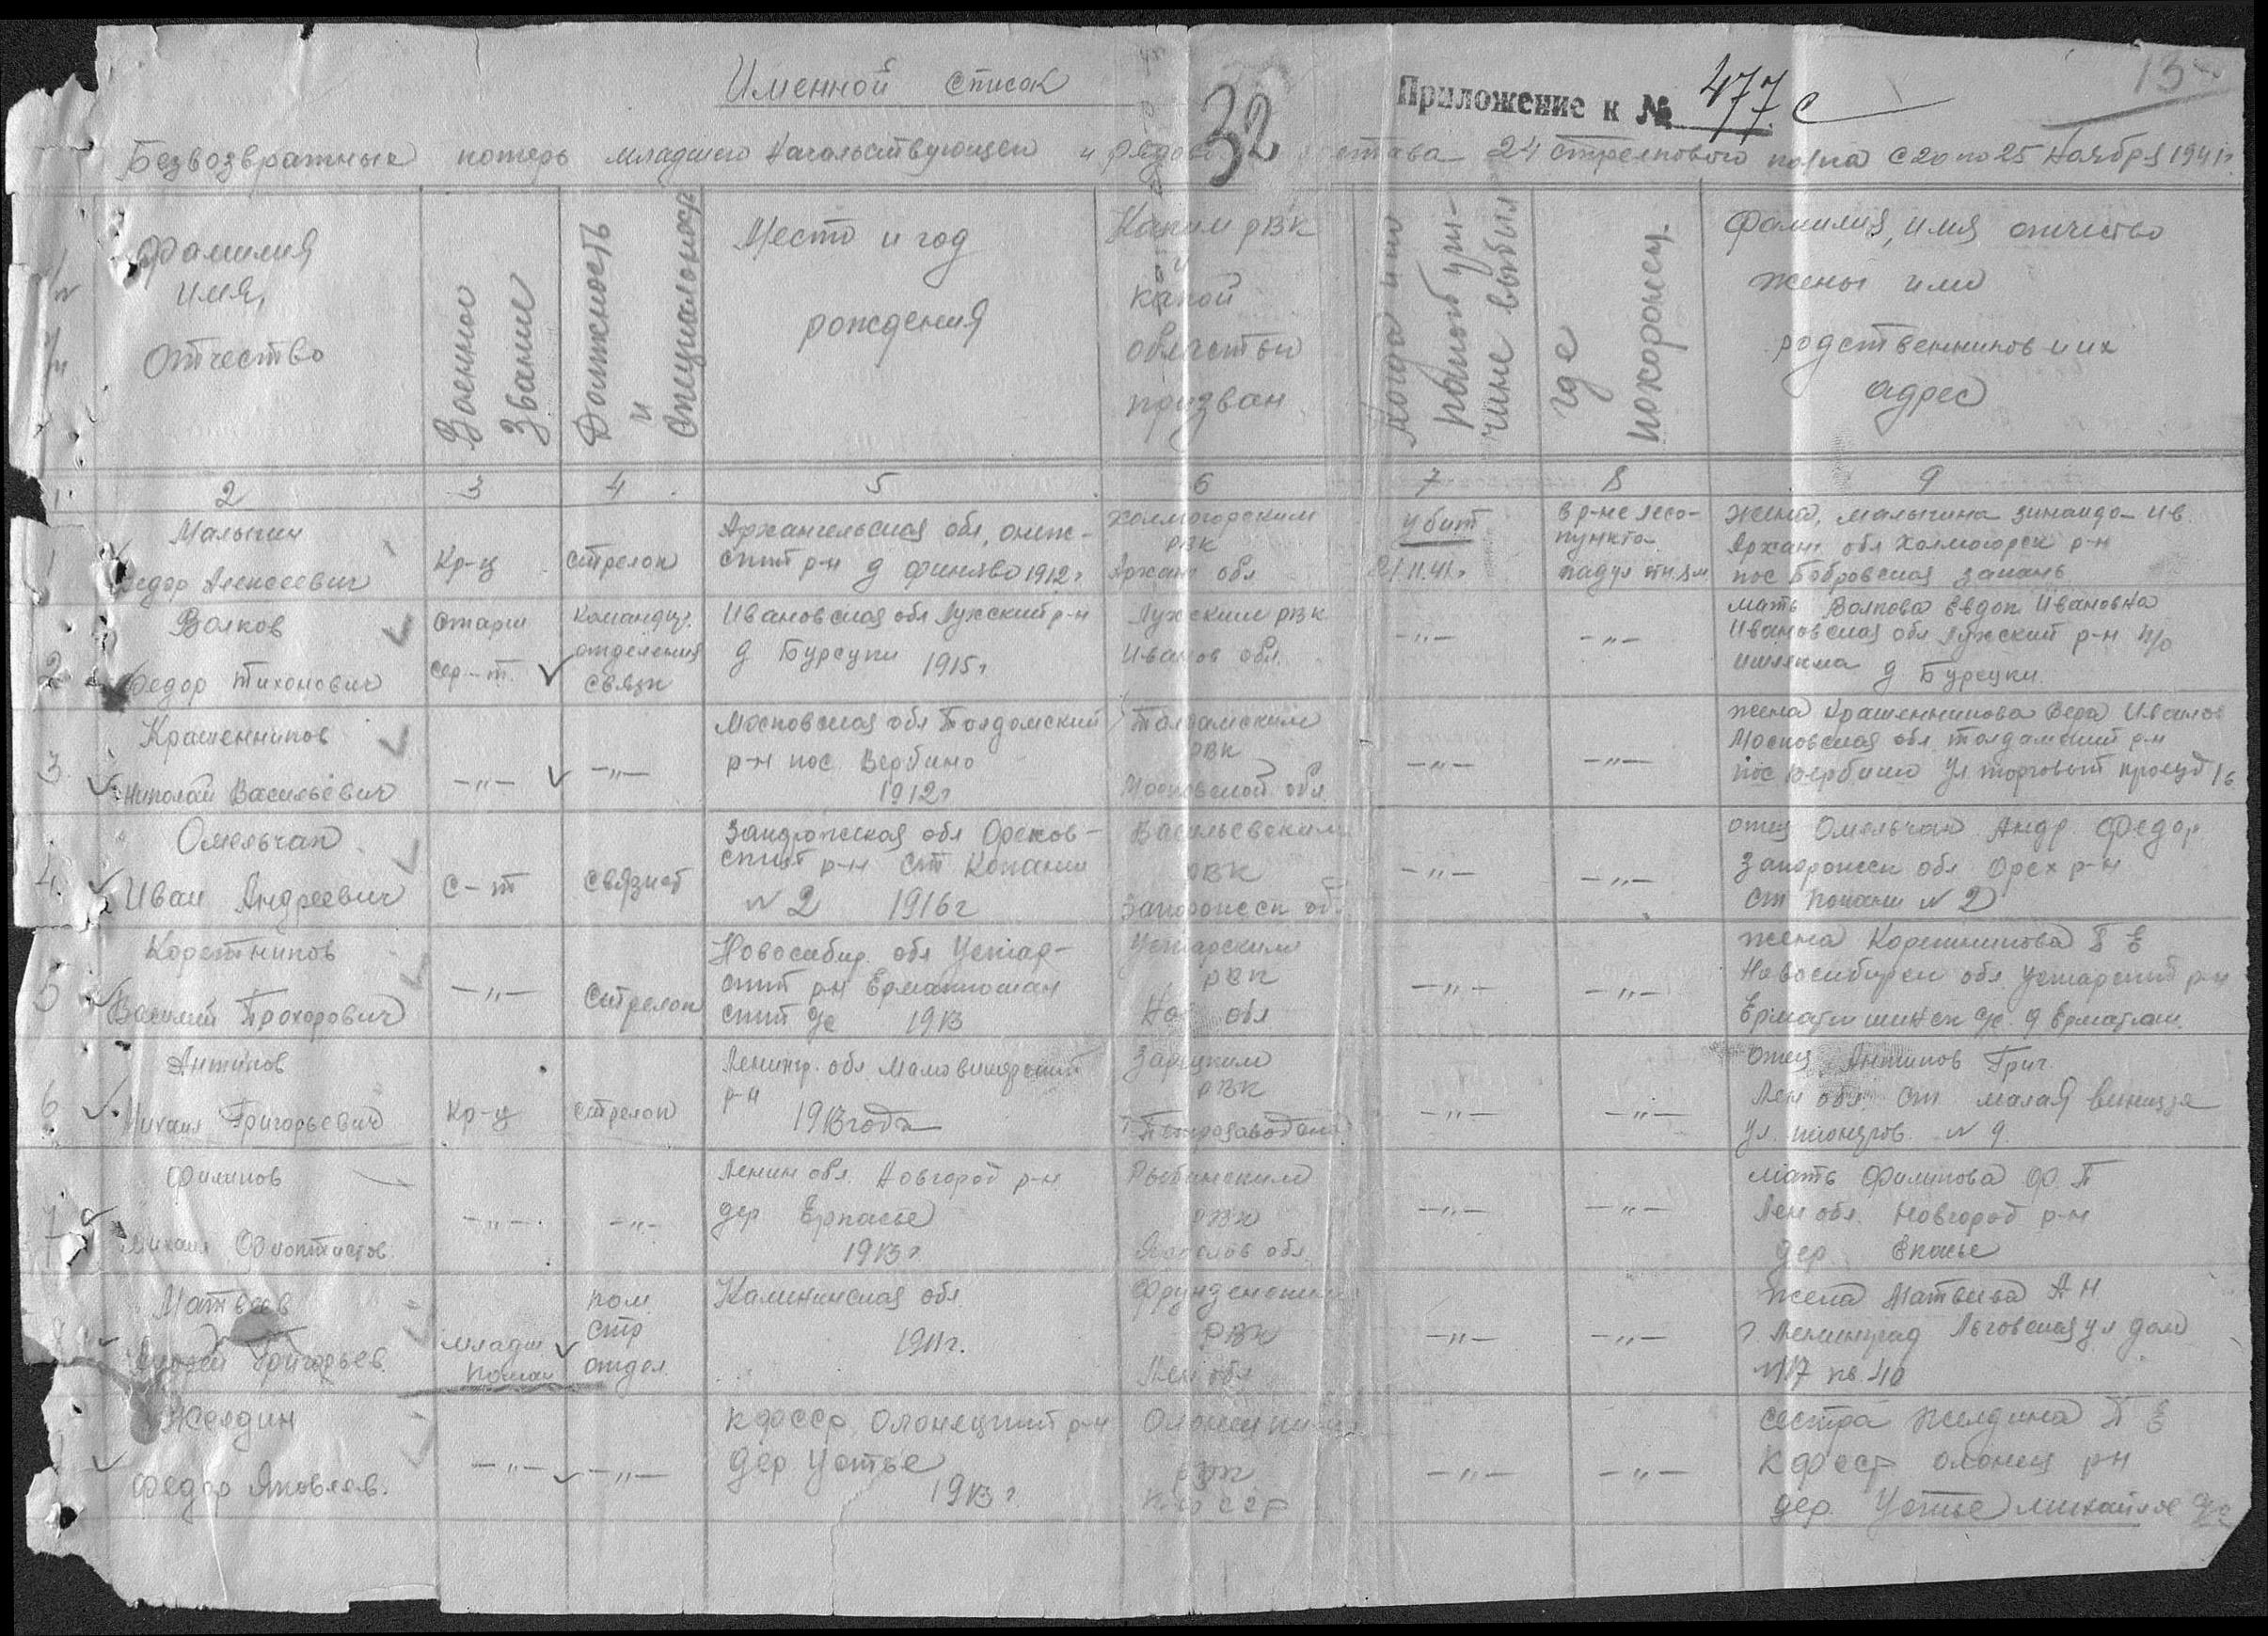 Именной список
32
Приложение к № 477 с
13
Безвозвратных потерь младшего начальствующего и рядового состава 24 стрелкового полка с 20 по 25 ноября 1941 г.
Фамилия
имя,
отчество
Военное
звание
Должность
и
специальность
Место и год
рождения
Каким РВК
и
какой
областью
призван
Когда и по
какой при-
чине выбыл
где
похоронен.
Фамилия, имя отчество
жены или
родственников и их
адрес
1 2 3 4 5 6 7 8 9
1
Малыгин
Федор Алексеевич
Кр-ц
стрелок
Архангельская обл, онеж-
ский р-н д 1912 г
Холмогорским
РВК
Арханг обл
убит
21.11.41 г
в р-не лесо-
пункта
жена, Малыгина Зинаида Ив.
Арханг обл Холмогорск р-н
пос Бобровская запань
2
Волков
Федор Тихонович
старш
сер-т.
командир.
отделения
связи
Ивановская обл Лухский р-н
д Бурсуки 1915 г
Лухским РВК
Иванов обл.
-"-
-"-
мать Волкова Евдок Ивановна
Ивановская обл Лухский р-н п/о
д Бурсуки.
3.
Крашенников
Николай Васильевич
-"-
-"-
Московская обл Талдомский
р-н пос. Вербино
1912 г
Талдамским
РВК
Московской обл
-"-
-"-
жена Крашенникова Вера Иванов
Московская обл талдамский р-н
пос Вербино ул торговый проезд 16
4.
Омельчак
Иван Андреевич
с-т
связной
Запорожская обл Орехов-
ский р-н ст Копани
№ 2 1916 г
Васильевским
РВК
Запорожск об.
-"-
-"-
отец Омельчак Андр. Федор
Запорожск обл Орех р-н
ст Копани № 2
5
Коретников
Василий Прохорович
-"-
стрелок
Новосибир. обл Устар-
ский р-н
ский с/с 1913
Устарским
РВК
Нов обл
-"-
-"-
жена Коретникова П Е
Новосибирск обл Устарский р-н
6
Антипов
Михаил Григорьевич
Кр-ц
стрелок
Ленингр. обл. Маловишерский
р-н
1913 года
Зарецким
РВК
г Петрозаводска
-"-
-"-
отец Антипов Григ.
Лен обл. ст малая вишера
ул. пионеров № 9.
7
Филипов
Михаил
-"-
-"-
Ленин обл. Новгород р-н
дер
1913 г
Рыбинским
РВК
Яросл обл.
-"-
-"-
мать Филипова Ф. П
Лен обл. Новгород р-н
дер
8
Матвеев
Григорьев.
Младш
Коман
пом
стр
отдел
Калининская обл
1911 г.
Фрунзенским
РВК
Лен обл
-"-
-"-
жена Матвеева А Н
г Ленинград Льговская ул дом
№ 17 кв. 40
Желдин
Федор Яковлев.
-"-
-"-
КФССР, Олонецкий р-н
дер Устье
1913 г
Олонецким
РВК
К Ф ССР
-"-
-"-
сестра Желдина П Е
К Ф ССР олонец р-н
дер. Устье